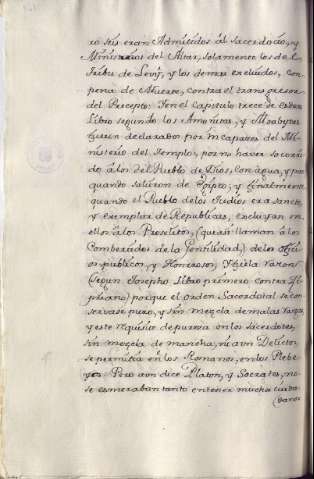 ro sus eran Admitidos al Sacerdocio, y
Ministerios del Altar, solamente los de el
Tribu de Levy, y los demas excluidos, con
pena de Muerte, contra el transgresor
del Precepto: Y en el Capitulo trece de Esdras
Libro segundo los Amonitas, y Moabytas
fueron declarados por incapaces del Mi-
nisterio del Templo, por no haver socorri-
do a los del Pueblo de Dios, con agua, y pan
quando salieron de Egipto, y finalmente
quando el Pueblo de los Judios era sancto
y exemplar de Republicas, excluyan en
ellos a los Proselitos, (que asi llaman a los
Combertidos de la Gentilidad,) de los Ofizi-
os publicos, y Honrosos, Y
(segun Josepho Libro primero contra Ap-
piano) porque el orden Sacerdotal se con-
servase puro, y sin mezcla de malas razas,
y este requisito de pureza en los sacerdotes,
sin mezcla de mancha, ni aun Delictos,
se permitia en los Romanos, en los Plebe-
yos Pero aun dice Platon, y Socrates, no
se esmeraban tanto en tener mucho cuida-